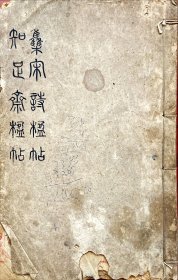 集宋詩楹帖
知足齋楹帖